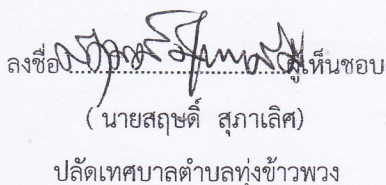 ลงชื่อ...............................ผู้เห็นชอบ
( นายสฤษดิ์ สุภาเลิศ)
ปลัดเทศบาลตำบลทุ่งข้าวพวง